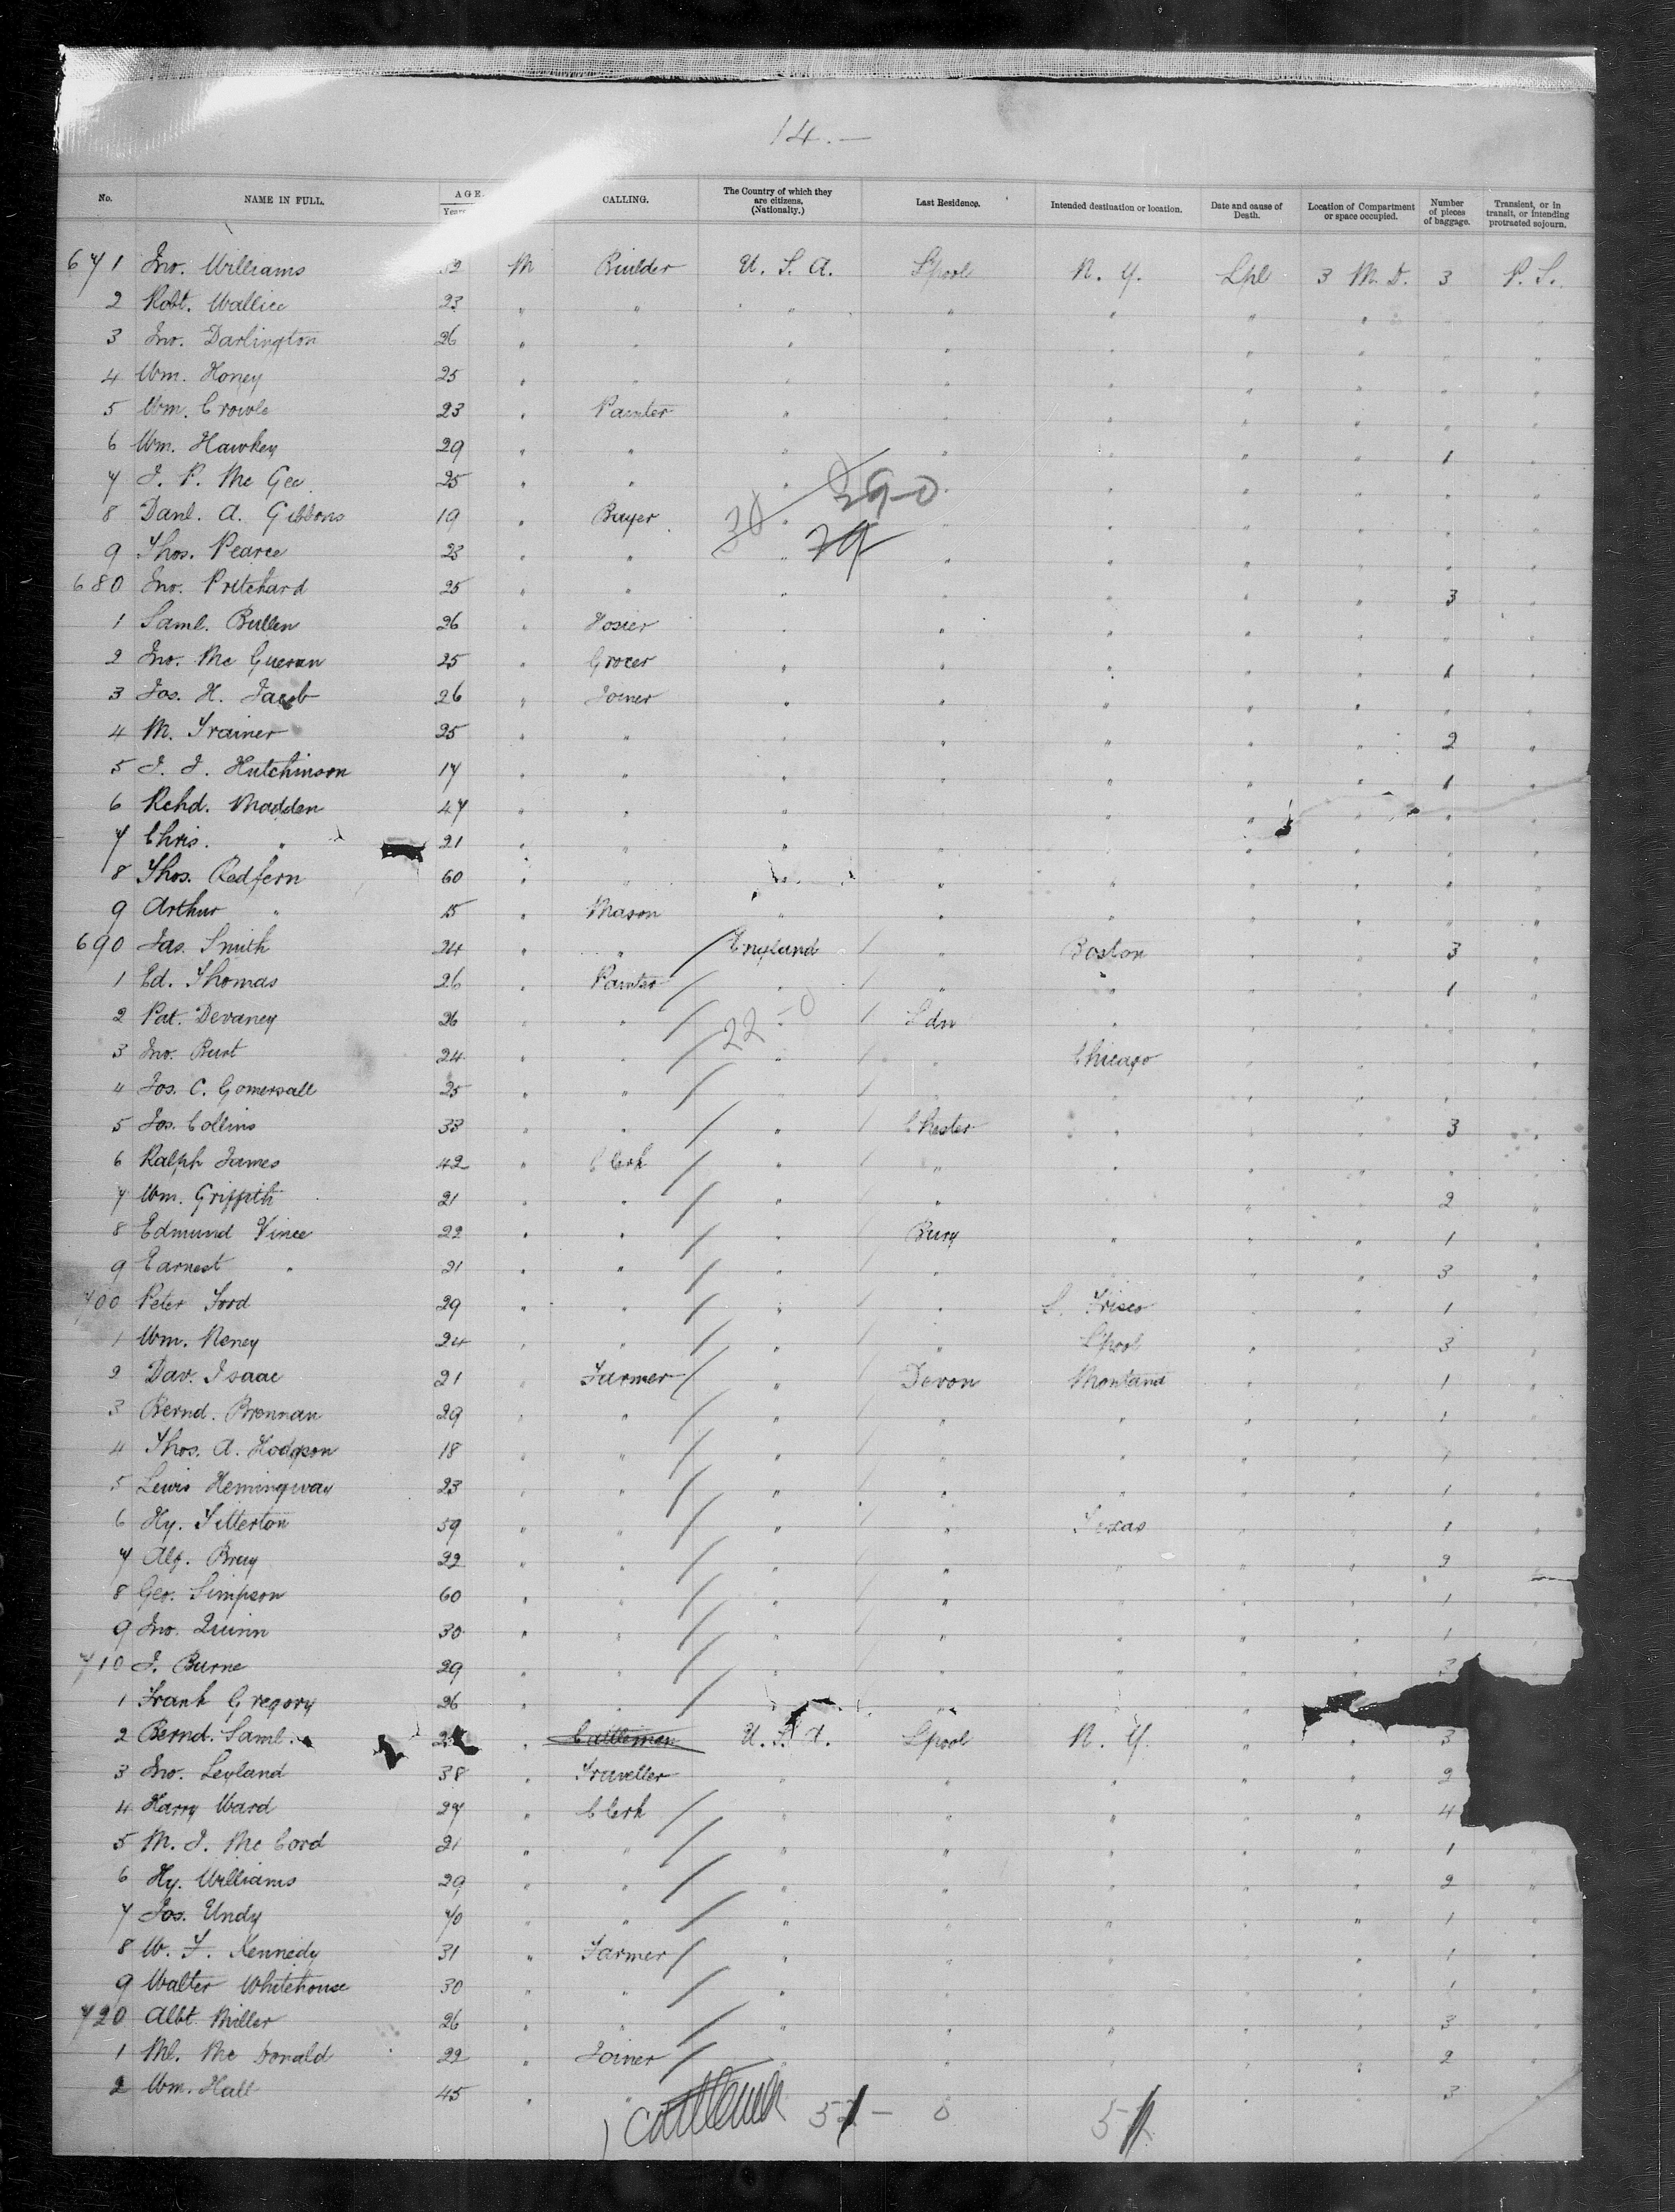 14. —
No. NAME IN FULL. AGE. Years CALLING. The Country of which they are citizens. (Nationalty.) Last Residence. Intended destination or location. Date and cause of Death. Location of Compartment or space occupied. Number of pieces of baggage. Transient, or in transit, or intending protracted sojourn.
671 Jno. Williams 32 M Builder U. S. A. Lpool N. Y. Lpl 3 M. D. 3 P. S.
2 Robt. Wallice 23 " " " " " " "
3 Jno. Darlington 26 " " " " " " "
4 Wm. Honey 25 " " " " " " "
5 Wm. Crowle 23 " Painter " " " " "
6 Wm. Hawkey 29 " " " " " " " 1 "
7 J. P. Mc Gee 25 " " " " " " " " "
8 Danl. A. Gibbons 19 " Buyer " " " " " " "
30 390
29
9 Thos. Pearce 23 " " " " " " " " "
680 Jno. Pritchard 25 " " " " " " " 3 "
1 Saml. Bullen 26 " Hosier " " " " " " "
2 Jno. Mc Gueran 25 " Grocer " " " " " 1 "
3 Jos. H. Jacob 26 " Joiner " " " " " " "
4 M. Trainer 25 " " " " " " " 2 "
5 J. J. Hutchinson 17 " " " " " " " 1 "
6 Rchd. Madden 47 " " " " " " " " "
7 Chris. " 21 " " " " " " " " "
8 Thos. Redfern 60 " " " " " " " " "
9 Arthur " 15 " Mason " " " " " " "
690 Jas. Smith 24 " " / England / " Boston " " 3 "
1 Ed. Thomas 26 " Painter / " / " " " " 1 "
2 Pat. Devaney 26 " " / " / Ldn " " " " "
22 - 0
3 Jno. Burt 24 " " / " / " Chicago " " " "
4 Jos. C. Gomersall 25 " " / " / " " " " " "
5 Jos. Collins 33 " " / " / Chester " " " 3 "
6 Ralph James 42 " Clerk / " / " " " " " "
7 Wm. Griffith 21 " " / " / " " " " 2 "
8 Edmund Vince 22 " " / " / Bury " " " 1 "
9 Earnest " 21 " " / " / " " " " 3 "
700 Peter Ford 29 " " / " / " S. Frisco " " 1 "
1 Wm. Neney 24 " " / " / " Lpool " " 3 "
2 Dav. Isaac 21 " Farmer / " / Devon Montana " " 1 "
3 Bernd. Brennan 29 " " / " / " " " " 1 "
4 Thos. A. Hodgson 18 " " / " / " " " " 1 "
5 Lewis Hemingway 23 " " / " / " " " " 1 "
6 Hy. Titterton 59 " " / " / " Texas " " 1 "
7 Alf. Bray 22 " " / " / " " " " 2 "
8 Geo. Simpson 60 " " / " / " " " " 1 "
9 Jno. Quinn 30 " " / " / " " " " 1 "
710 J. Burne 29 " " / " / " " " " 3
1 Frank Gregory 26 " " / " " " "
2 Bernd. Saml. " Cattleman U. S. A. Lpool N. Y. " " 3
3 Jno. Leyland 38 " Traveller " " " " " 2
4 Harry Ward 27 " Clerk / " " " " " 4
5 M. J. Mc Cord 21 " " / " " " " " 1 "
6 Hy. Williams 29 " " / " " " " " 2 "
7 Jos. Undy 40 " " / " " " " " 1 "
8 W. F. Kennedy 31 " Farmer / " " " " " 1 "
9 Walter Whitehouse 30 " " / " " " " " 1 "
720 Albt. Miller 26 " " / " " " " " 3 "
1 Ml. Mc Donald 22 " Joiner / " " " " " 2 "
2 Wm. Hall 45 " " " " " " 3 "
cattlemen 51 - 0 51